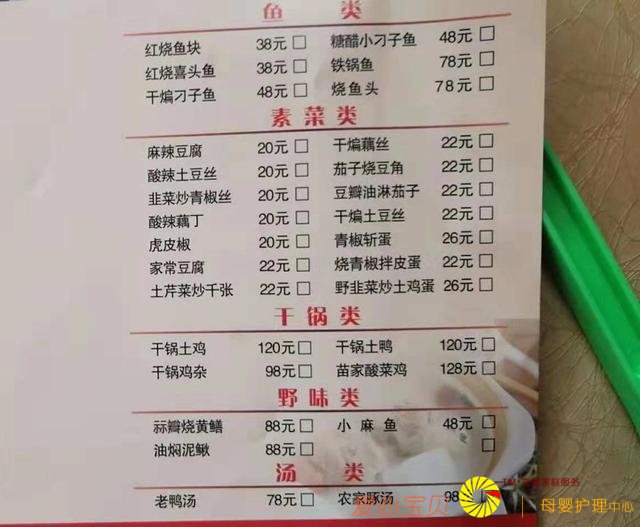 鱼 类
红烧鱼块 38元 □ 糖醋小刁子鱼 48元 □
红烧喜头鱼 38元 □ 铁锅鱼 78元 □
干煸刁子鱼 48元 □ 烧鱼头 78元 □
素菜类
麻辣豆腐 20元 □ 干煸藕丝 22元 □
酸辣土豆丝 20元 □ 茄子烧豆角 22元 □
韭菜炒青椒丝 20元 □ 豆瓣油淋茄子 22元 □
酸辣藕丁 20元 □ 干煸土豆丝 22元 □
虎皮椒 20元 □ 青椒斩蛋 26元 □
家常豆腐 22元 □ 烧青椒拌皮蛋 22元 □
土芹菜炒千张 22元 □ 野韭菜炒土鸡蛋 26元 □
干锅类
干锅土鸡 120元 □ 干锅土鸭 120元 □
干锅鸡杂 98元 □ 苗家酸菜鸡 128元 □
野味类
蒜瓣烧黄鳝 88元 □ 小麻鱼 48元 □
油焖泥鳅 88元 □ □
汤 类
老鸭汤 78元 □ 农家豚汤 98
TM 家庭服务
宝贝 母婴护理中心